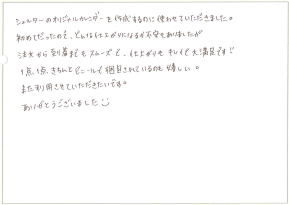 シェルターのオリジナルカレンダーを作成するのに使わせていただきました。
初めてだったので、どんな仕上がりになるか不安もありましたが
注文から到着までもスムーズで、仕上がりもキレイで大満足です
1点1点、きちんとビニールで梱包されているのも嬉しい。
また利用させていただきたいです。
ありがとうございました